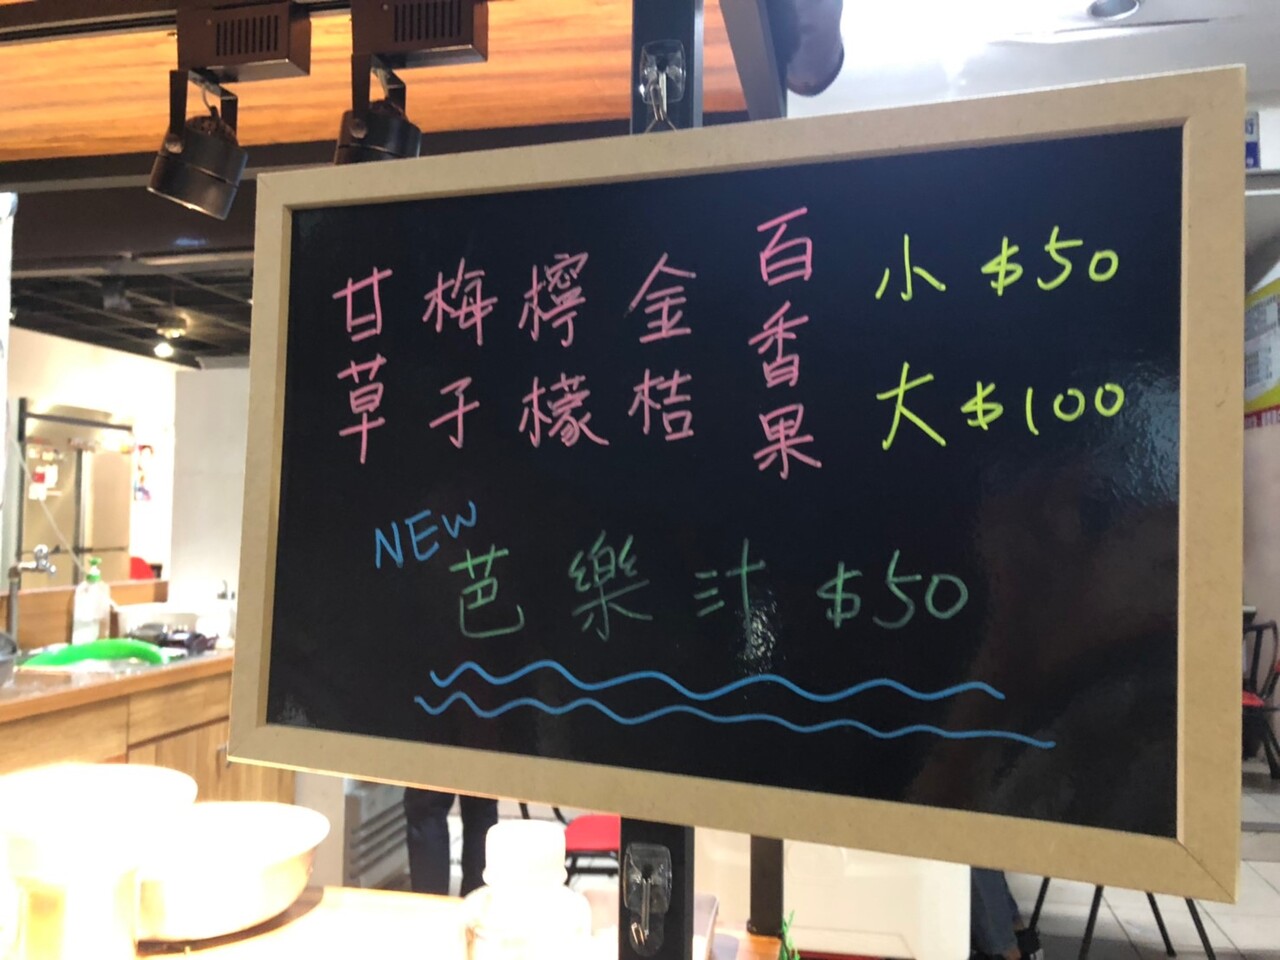 甘草
梅子
檸檬
金桔
百香果
小 $50
大 $100
NEW
芭樂汁 $50